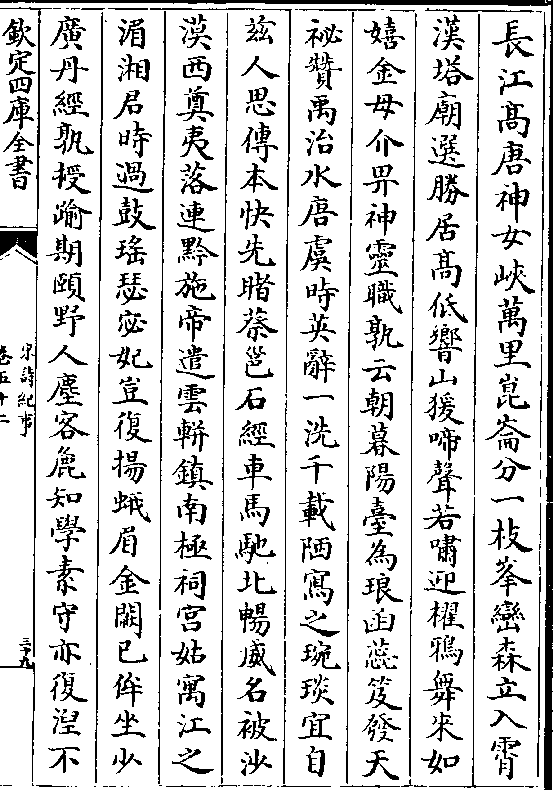 長江髙唐神女峽萬里崑崙分一枝峯巒森立入霄
漢塔廟選勝居髙低響山猨啼聲若嘯迎櫂鴉舞來如
嬉金母介畀神靈職孰云朝暮陽臺為琅函蕊笈發天
祕贊禹治水唐虞時英辭一洗千載陋寫之琬琰宜自
兹人思傳本快先睹蔡邕石經車馬馳北暢威名被沙
漠西奠夷落連黔施帝遣雲軿鎮南極祠宫姑寓江之
湄湘君時過鼓瑤瑟宓妃豈復揚蛾眉金闕已侔坐少
廣丹經孰授踰期頤野人塵客麄知學素守亦復湼不
欽定四庫全書
宋詩紀事
卷五十二
三十九